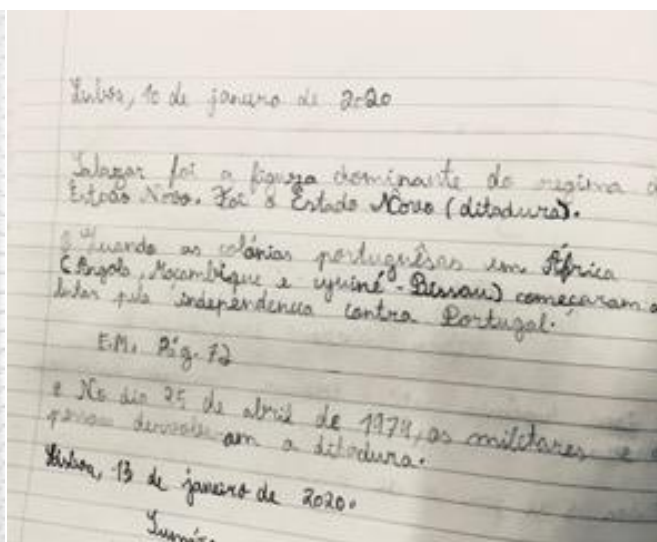 Lisboa, 10 de janeiro de 2020
Salazar foi a figura dominante do regime d
Estado Novo. Foi o Estado Novo (ditadura).
Quando as colónias portuguêsas em África
(Angola, Moçambique e Guiné-Bissau) começaram a
lutar pela independencia contra Portugal.
E.M. Pág. 72
No dia 25 de abril de 1974, os militares e
a ditadura.
Lisboa, 13 de janeiro de 2020.